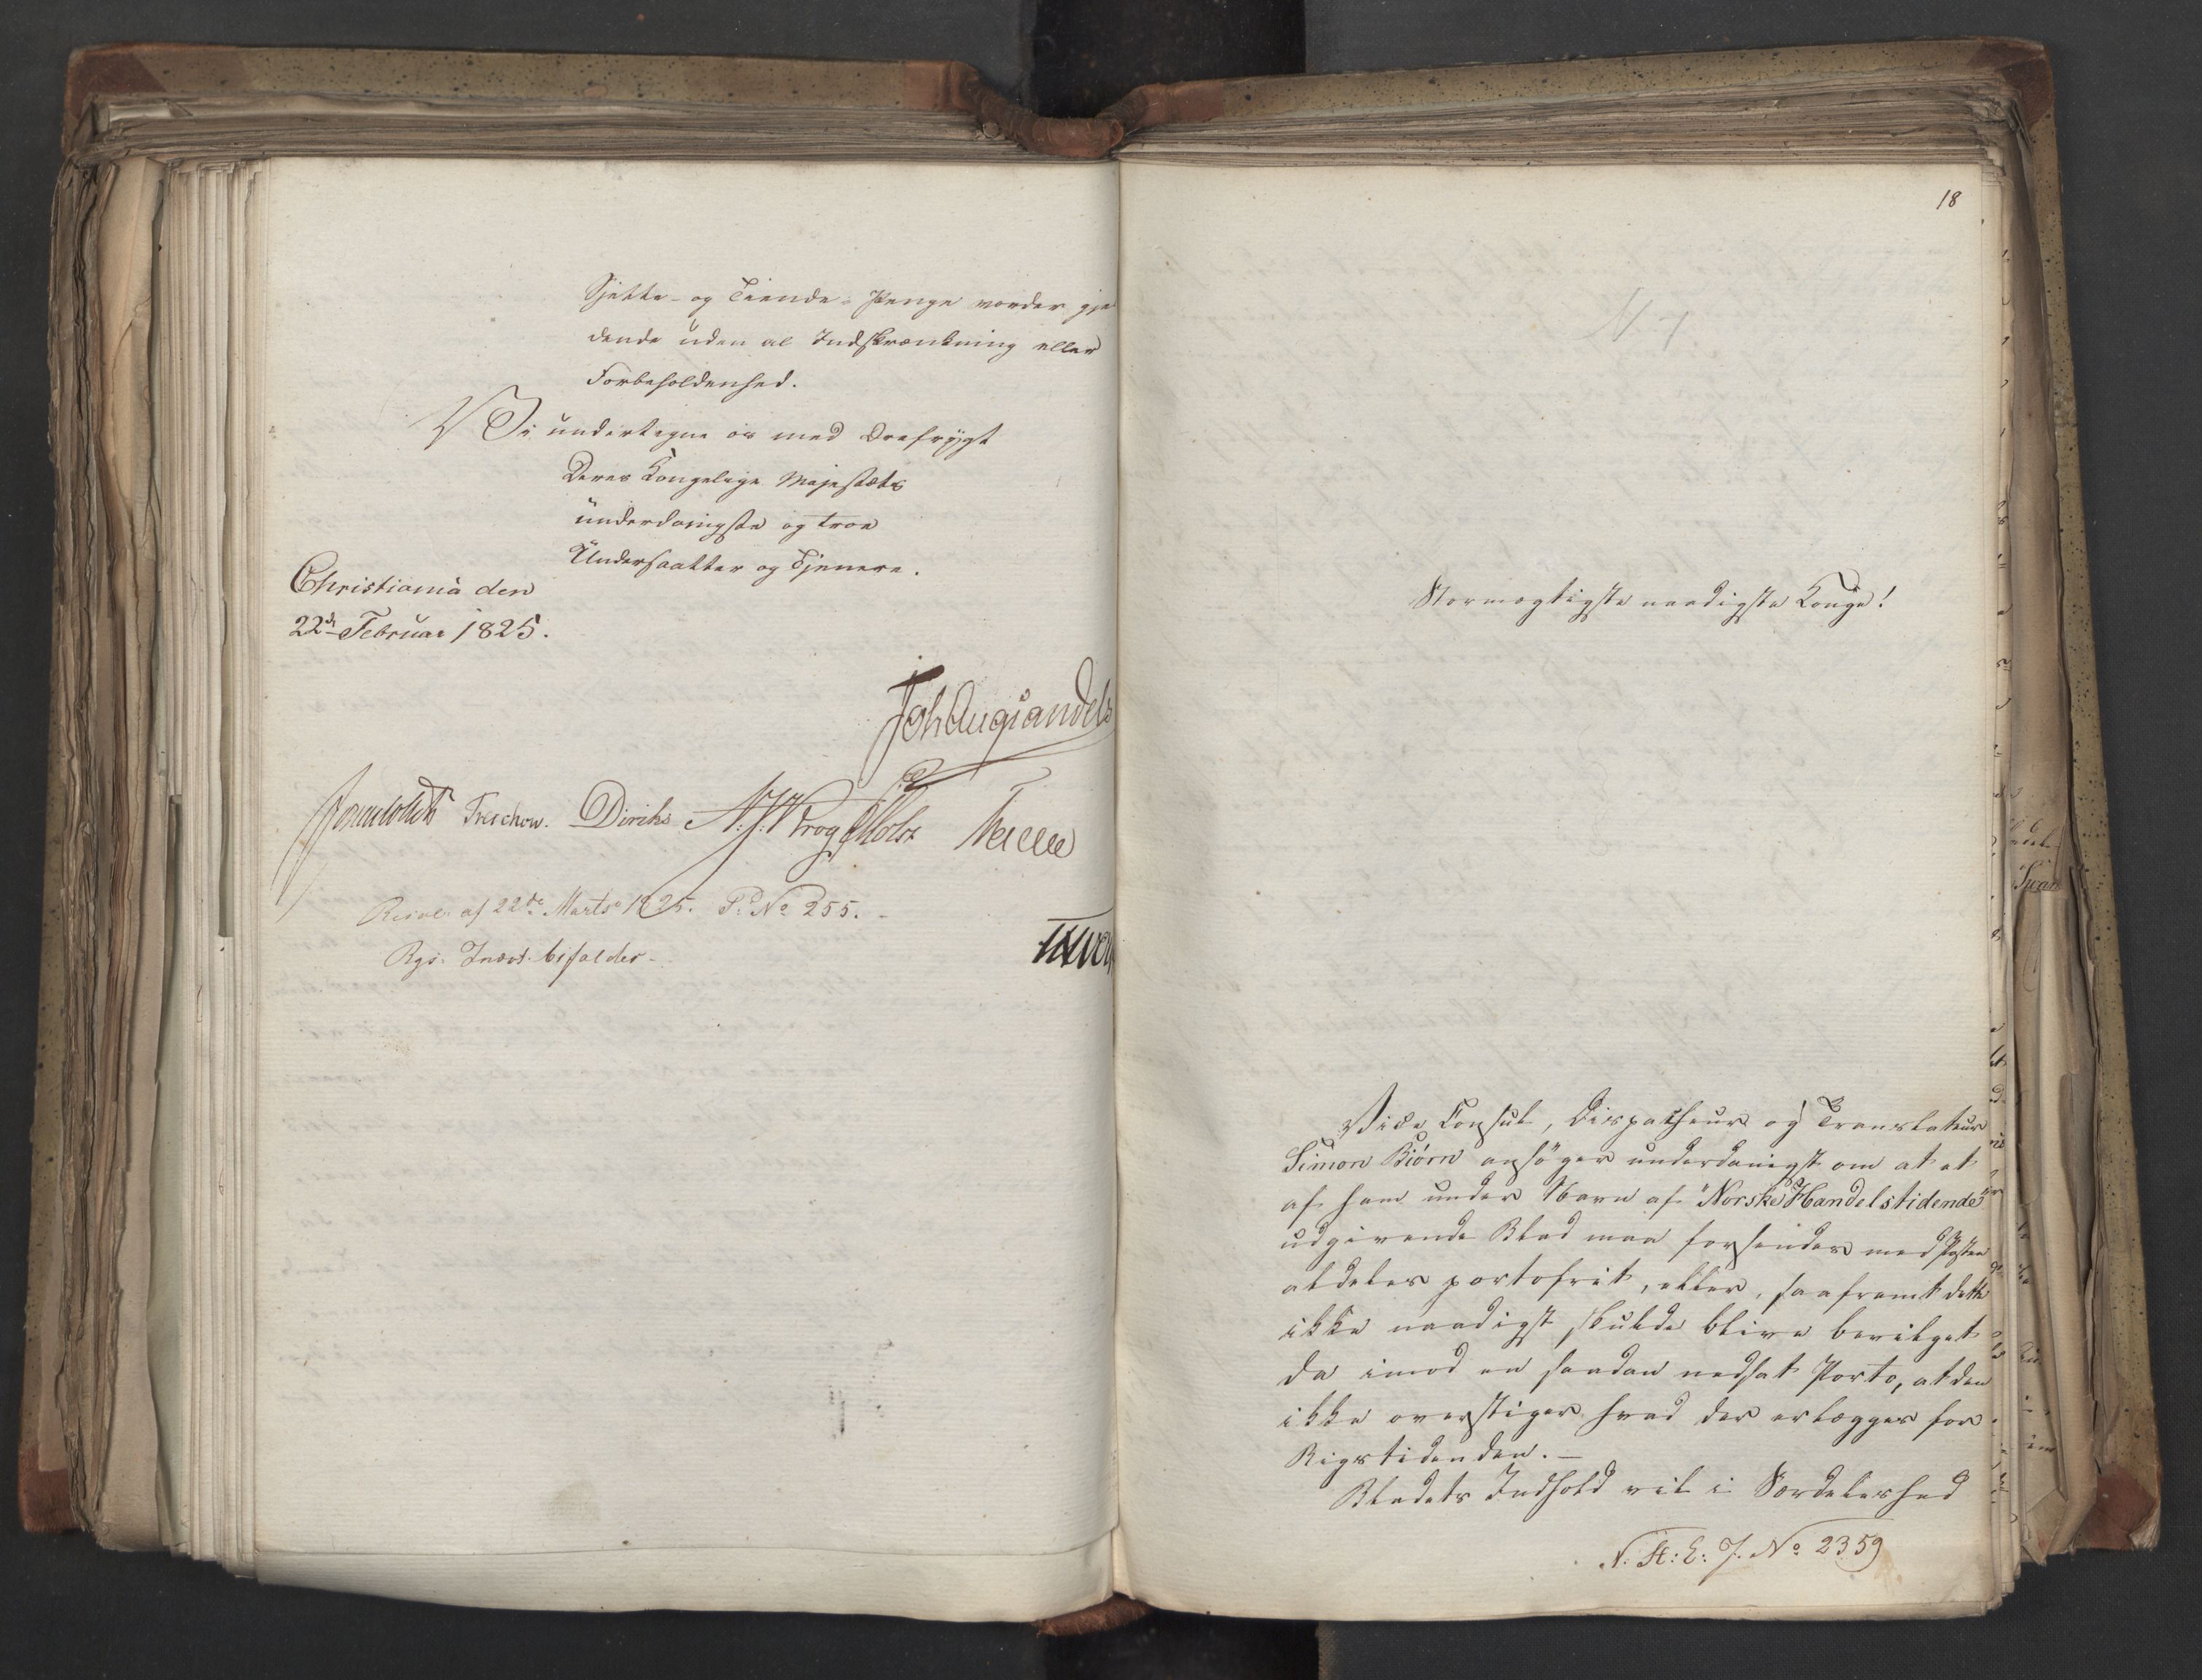 Sjette- og Tiende-Penge vorder gje
dende uden al Indskrænkning eller
Forbeholdenhed.
Vi undertegne os med Ærefrygt
Deres Kongelige Majestæts
underdanigste og troe
Undersaatter og Tjenere.
Christiania den
22de Februar 1825.
Joh Aug Sandels
Sommerhielm Treschow. Diriks A. J. W Krog Holst
Resol. af 22de Marts 1825. P: No 255.
Rgs. Indst. bifaldes.
18
N 7
Stormægtigste naadigste Konge!
Vice Consul, Dispacheur og Translateur
Simon Biørn ansøger underdanigst om at et
af ham under Navn af "Norske Handelstidende"
udgivende Blad maa forsendes med Posten
aldeles portofrit, eller, saafremt dette
ikke naadigst skulde blive bevilget
da imod en saadan nedsat Porto, at den
ikke overstiger hvad der erlægges for
Rigstidenden.—
Bladets Indhold vil i Særdeleshed
N: H: E: J. No 2359